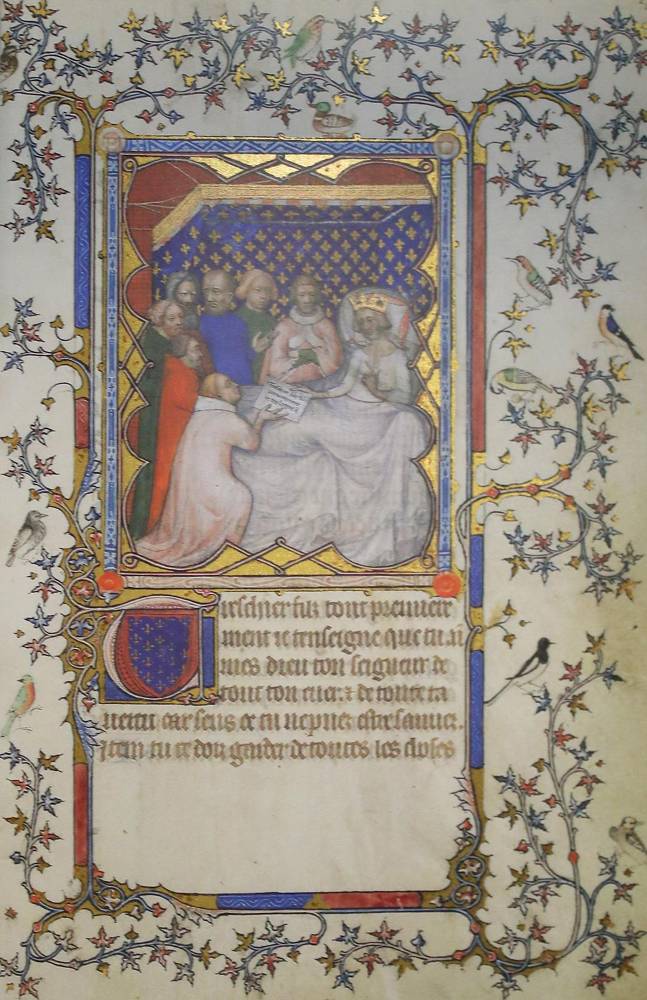 Treschier filz tout premiere
ment ie tenseigne que tu ai
mes dieu ton seigneur de
tout ton cuer ⁊ de toute ta
uertu car sens ce tu ne puez estre sauuez.
Item tu te doiz garder de toutes les choses